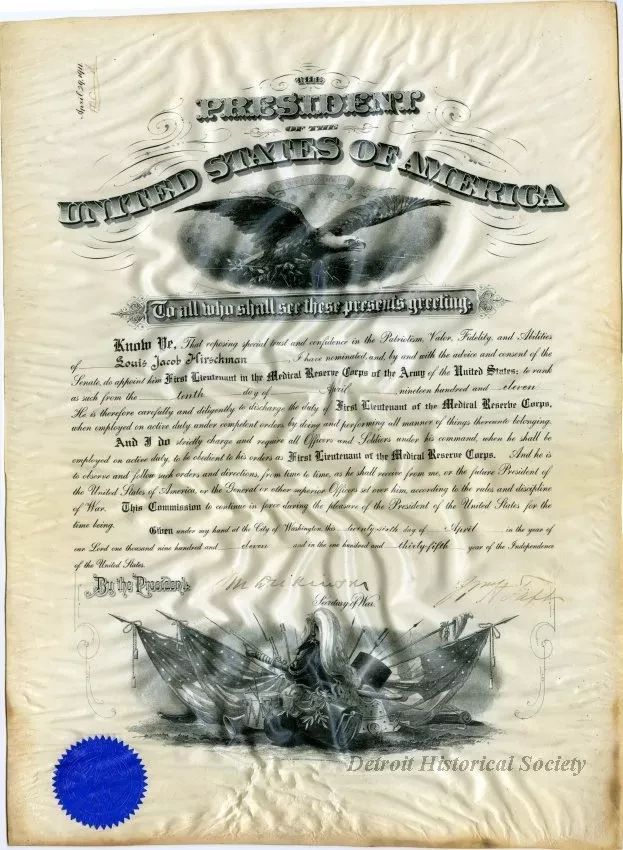 April 29, 1911
THE
PRESIDENT
OF THE
UNITED STATES OF AMERICA
To all who shall see these presents greeting:
Know Ye, That reposing special trust and confidence in the Patriotism, Valor, Fidelity, and Abilities
of Louis Jacob Hirschman, I have nominated and, by and with the advice and consent of the
Senate, do appoint him First Lieutenant in the Medical Reserve Corps of the Army of the United States: to rank
as such from the tenth day of April, nineteen hundred and eleven
He is therefore carefully and diligently to discharge the duty of First Lieutenant of the Medical Reserve Corps,
when employed on active duty under competent orders by doing and performing all manner of things thereunto belonging.
And I do strictly charge and require all Officers and Soldiers under his command, when he shall be
employed on active duty, to be obedient to his orders as First Lieutenant of the Medical Reserve Corps. And he is
to observe and follow such orders and directions, from time to time, as he shall receive from me, or the future President of
the United States of America, or the General or other superior Officers set over him, according to the rules and discipline
of War. This Commission to continue in force during the pleasure of the President of the United States for the
time being.
Given under my hand at the City of Washington, this twenty sixth day of April in the year of
our Lord one thousand nine hundred and eleven and in the one hundred and thirty-fifth year of the Independence
of the United States.
By the President:
M Dickinson
Wm H Taft
Secretary of War.
Detroit Historical Society